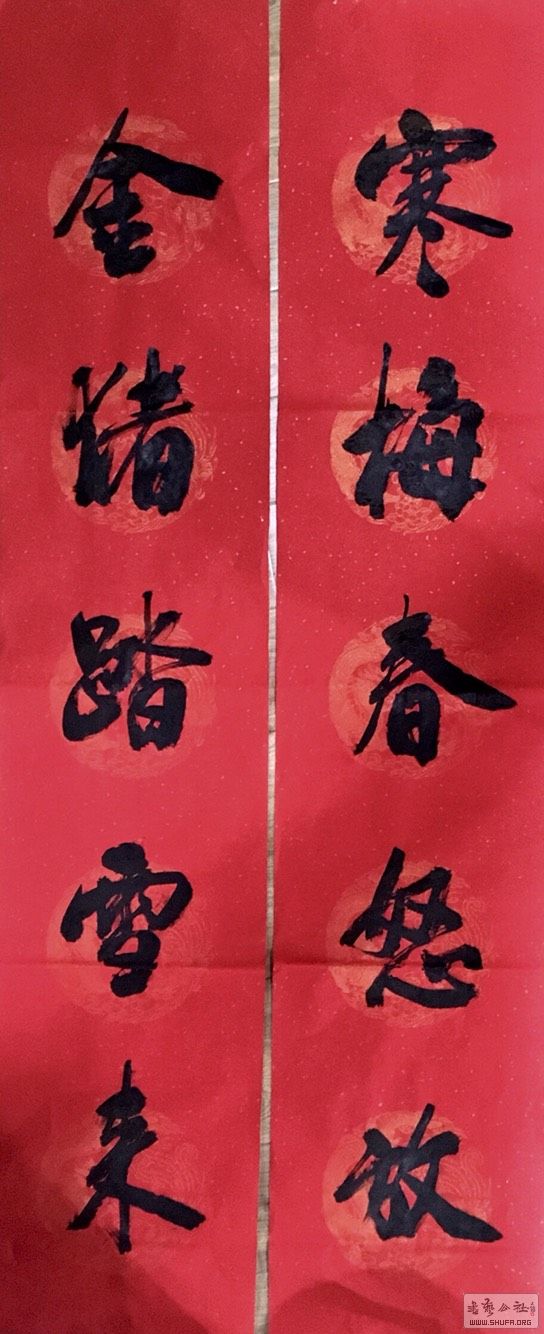 寒梅春怒放
金猪踏雪来
书艺公社
WWW.SHUFA.ORG